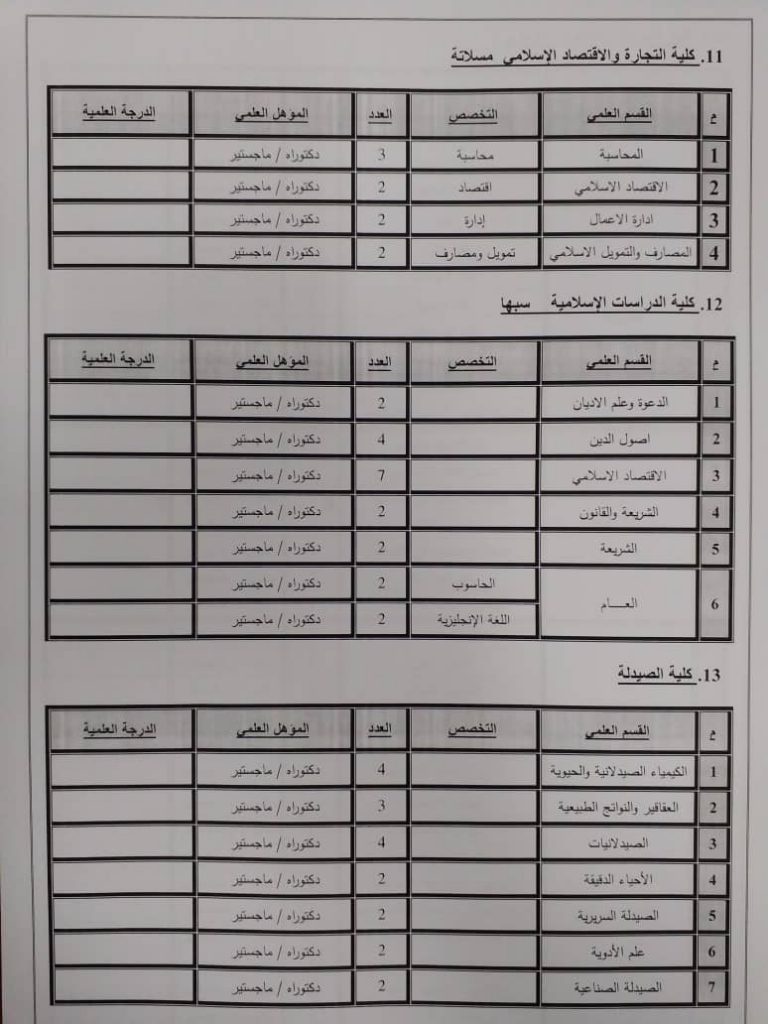 11. كلية التجارة والاقتصاد الإسلامي مسلاتة
م القسم العلمي التخصص العدد المؤهل العلمي الدرجة العلمية
1 المحاسبة محاسبة 3 دكتوراه / ماجستير
2 الاقتصاد الاسلامي اقتصاد 2 دكتوراه / ماجستير
3 ادارة الاعمال إدارة 2 دكتوراه / ماجستير
4 المصارف والتمويل الاسلامي تمويل ومصارف 2 دكتوراه / ماجستير
12. كلية الدراسات الإسلامية سبها
م القسم العلمي التخصص العدد المؤهل العلمي الدرجة العلمية
1 الدعوة وعلم الاديان 2 دكتوراه / ماجستير
2 اصول الدين 4 دكتوراه / ماجستير
3 الاقتصاد الاسلامي 7 دكتوراه / ماجستير
4 الشريعة والقانون 2 دكتوراه / ماجستير
5 الشريعة 2 دكتوراه / ماجستير
6 العـــام الحاسوب 2 دكتوراه / ماجستير
اللغة الإنجليزية 2 دكتوراه / ماجستير
13. كلية الصيدلة
م القسم العلمي التخصص العدد المؤهل العلمي الدرجة العلمية
1 الكيمياء الصيدلانية والحيوية 4 دكتوراه / ماجستير
2 العقاقير والنواتج الطبيعية 3 دكتوراه / ماجستير
3 الصيدلانيات 4 دكتوراه / ماجستير
4 الأحياء الدقيقة 2 دكتوراه / ماجستير
5 الصيدلة السريرية 2 دكتوراه / ماجستير
6 علم الأدوية 2 دكتوراه / ماجستير
7 الصيدلة الصناعية 2 دكتوراه / ماجستير